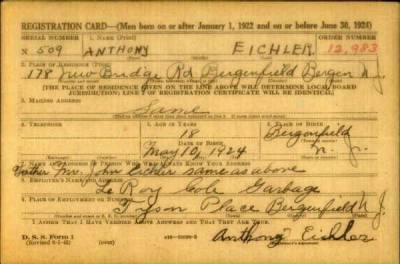 REGISTRATION CARD—(Men born on or after January 1, 1922 and on or before June 30, 1924)
SERIAL NUMBER 1. NAME (Print) ORDER NUMBER
N 509 ANTHONY EICHLER 12,983
2. PLACE OF RESIDENCE (Print)
178 New Bridge Rd Bergenfield Bergen N J
[THE PLACE OF RESIDENCE GIVEN ON THE LINE ABOVE WILL DETERMINE LOCAL BOARD
JURISDICTION; LINE 2 OF REGISTRATION CERTIFICATE WILL BE IDENTICAL]
3. MAILING ADDRESS
Same
4. TELEPHONE 5. AGE IN YEARS 6. PLACE OF BIRTH
18 Bergenfield
DATE OF BIRTH
May 10, 1924 N. J.
7. NAME AND ADDRESS OF PERSON WHO WILL ALWAYS KNOW YOUR ADDRESS
Father Mr. John Eichler same as above
8. EMPLOYER'S NAME AND ADDRESS
Le Roy Cole Garbage
9. PLACE OF EMPLOYMENT OR BUSINESS
Tyson Place Bergenfield N J
I AFFIRM THAT I HAVE VERIFIED ABOVE ANSWERS AND THAT THEY ARE TRUE.
D. S. S. Form 1 Anthony Eichler